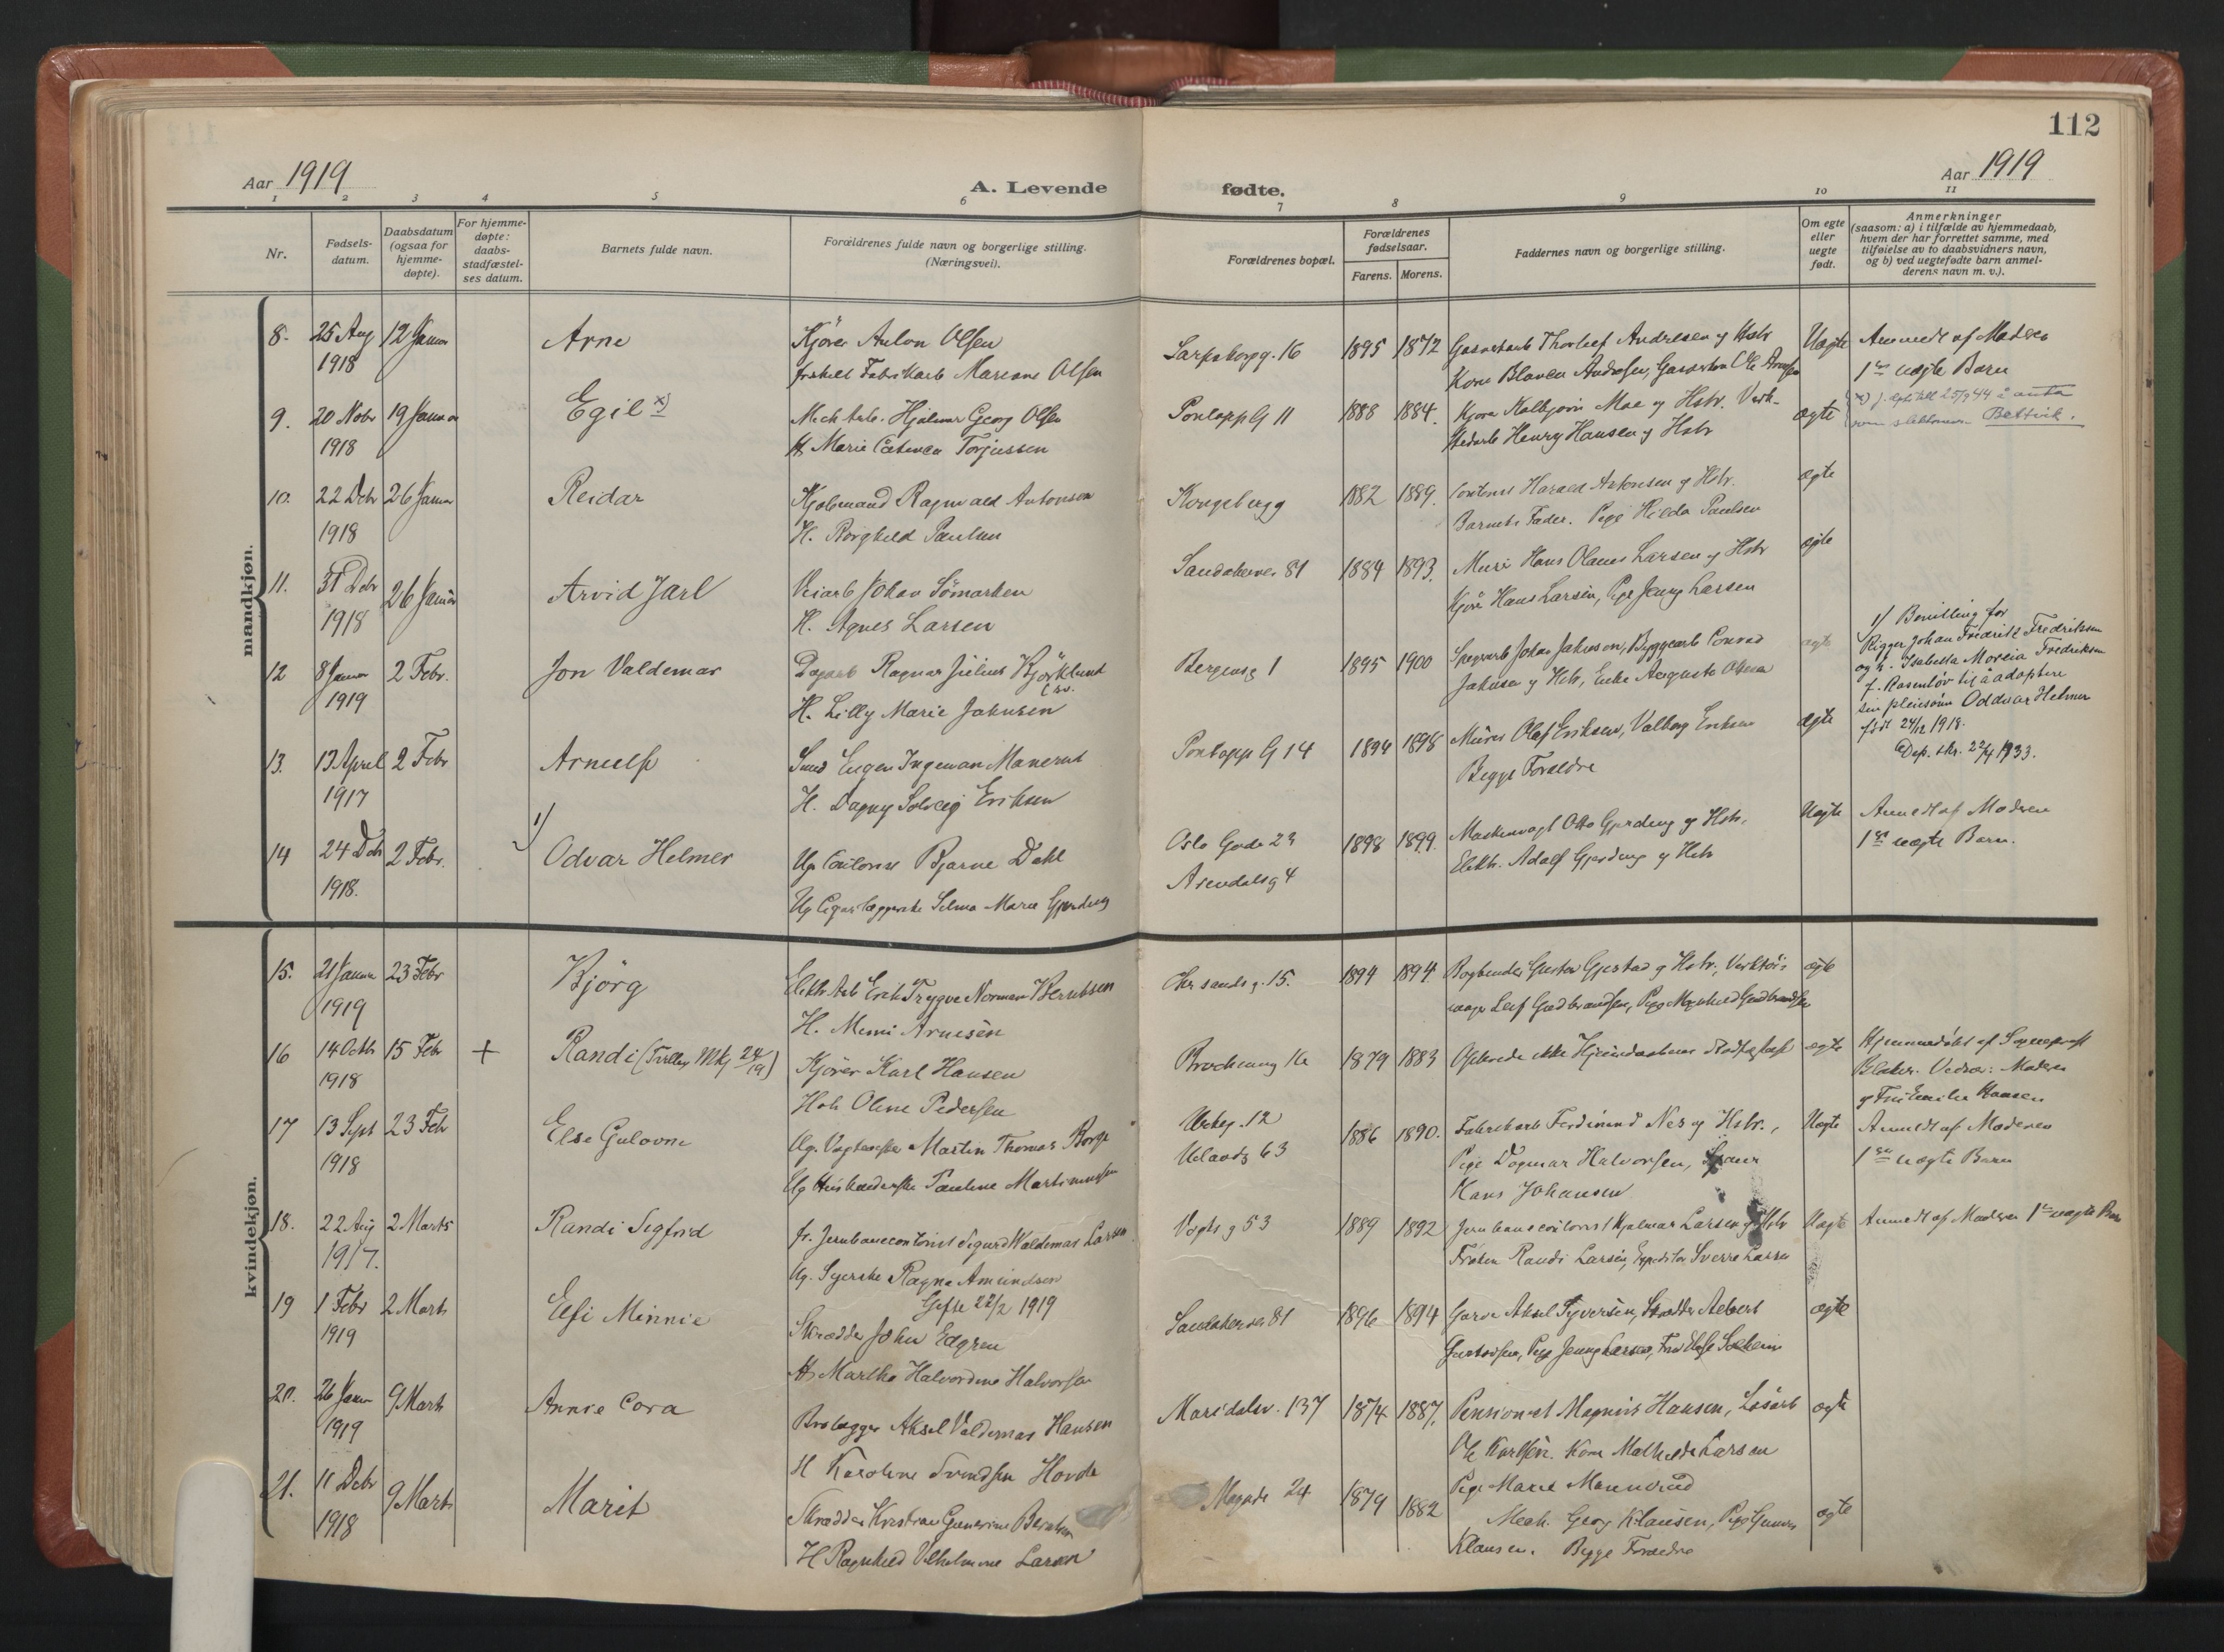 112
Aar 1919
A. Levende fødte.
Aar 1919
1 2 3 4 5 6 7 8 9 10 11
Nr.
Fødsels-
datum.
Daabsdatum
(ogsaa for
hjemme-
døpte).
For hjemme-
døpte:
daabs-
stadfæstel-
ses datum.
Barnets fulde navn.
Forældrenes fulde navn og borgerlige stilling.
(Næringsvei).
Forældrenes bopæl.
Forældrenes
fødselsaar.
Farens. Morens.
Faddernes navn og borgerlige stilling.
Om egte
eller
uegte
født.
Anmerkninger
(saasom: a) i tilfælde av hjemmedaab,
hvem der har forrettet samme, med
tilføielse av to daabsvidners navn,
og b) ved uegtefødte barn anmel-
derens navn m. v.).
mandkjøn.
8. 25 Aug 12 Januar Arne Kjører Anton Olsen Sarpsborgg. 16 1895 1872 Thorleif Andresen og Hstr Uegte Anmeldt af Moderen
1918 Fabrikarb Marianne Olsen Kone Andresen, 1ste uegte Barn
9. 20 Novbr 19 Januar Egil x) Mek Arb. Hjalmar Georg Olsen Pontopp G 11 1888 1884. Kjører Kolbjørn Moe og Hstr. Verk- egte x) 25/9 44 å anta
1918 H. Marie Torjussen stedarb Henry Hansen og Hstr som slektsnavn Bettvik.
10. 22 Debr 26 Januar Reidar Kjøbmand Ragnvald Antonsen Kongsbergg 1882 1889. Harald Antonsen og Hstr. egte
1918 H. Borghild Paulsen Barnets Fader. Pige Hilda Paulsen
11. 31 Debr 26 Januar Arvid Jarl Veiarb Johan Sömarken Sandakerver 81 1884 1893. Hans Olaus Larsen og Hstr egte
1918 H. Agnes Larsen Kjører Hans Larsen, Pige Jenny Larsen
12 8 Januar 2 Febr. Jon Valdemar Dagarb Ragnar Julius Bjørklund Bergensg 1 1895 1900 Johan Jakusen, Byggearb Conrad egte
1919 H. Lilly Marie Jakusen Jakusen og Hstr, Enke Augusta Olsen
1) Bevilling for
Rigger Johan Fredrik Fredriksen
og h. Isabella Moreia Fredriksen
f. Rosenløv til å adoptere
sin pleiesønn Oddvar Helmer
født 24/12 1918.
Dep. skr. 22/4 1933.
13. 13 April 2 Febr Arnulf Smed Eugen Ingeman Manerud Pontopp G 14 1894 1898 Murer Olaf Eriksen, Valborg Eriksen egte
1917 H. Dagny Solveig Eriksen Begge Forældre
14 24 Deb 2 Febr. 1) Odvar Helmer Ug Contorist Bjarne Dahl Oslo Gade 23 1898 1899. Otto Gjerding og Hstr. Uegte Anmeldt af Moderen
1918. Ug Selma Marie Gjerding Arendalsg 4 Elektr. Adolf Gjerding og Hstr 1ste uegte Barn.
kvindekjøn.
15. 21 Januar 23 Febr Bjørg Elektr Arb Erik Trygve Norman Berntsen Chr sands g. 15. 1894 1894. Bogbinder Gustav Gjestad og Hstr., Verktøi- egte
1919 H. Mimi Arnesen mager Leif Gudbrandsen, Pige Gudbrandsen
16 14 Octbr 15 Febr + Randi (Tvilling Mkj 24/19) Kjører Karl Hansen 16 1879 1883 ikke egte Hjemmedøbt af Sogneprest
1918 Hstr Oline Pedersen Moderen
og Frk Emilie Hansen
17 13 Sept 23 Feb Else Gulovne Ug. Martin Thomas Borge Uekeg. 12 1886 1890. Fabrikarb Ferdinand Nes og Hstr., Uegte Anmeldt af Moderen
1918 Ug Pauline Martinussen Uelandsg 63 Pige Dagmar Halvorsen, 1ste uegte Barn
Hans Johansen
18. 22 Aug 2 Marts Randi Sigfrid fr. Jernbanecontorist Sigurd Waldemar Larsen Vogts g 53 1889 1892 Jernbanecontorist Hjalmar Larsen og Hstr Uegte Anmeldt af Moderen 1ste uegte Barn
1917. Ug. Syerske Ragna Amundsen Frøken Randi Larsen, Expeditør Sverre Larsen
Gifte 22/2 1919
19 1 Febr 2 Marts Elfi Minnie Skrædder John Edgren Sandakerver 81 1896 1894 Garver Aksel Syversen, Skrædder Albert egte
1919 H. Martha Halvordine Halvorsen Gustavsen, Pige Jenny Larsen,
20. 26 Januar 9 Marts Annie Cora Brolægger Aksel Valdemar Hansen Maridalsv. 137 1874 1887. Magnus Hansen, Løsarb egte
1919 H Karoline Svendsen Hovde Ole Karlsen. Kone Mathilde Larsen
Pige Marie
21. 11 Debr 9 Marts Marit Skrædder Kristian 24 1879 1882 Mek. Georg Klausen, Pige egte
1918 H Ragnhild Vilhelmine Larsen Klausen. Begge Forældre